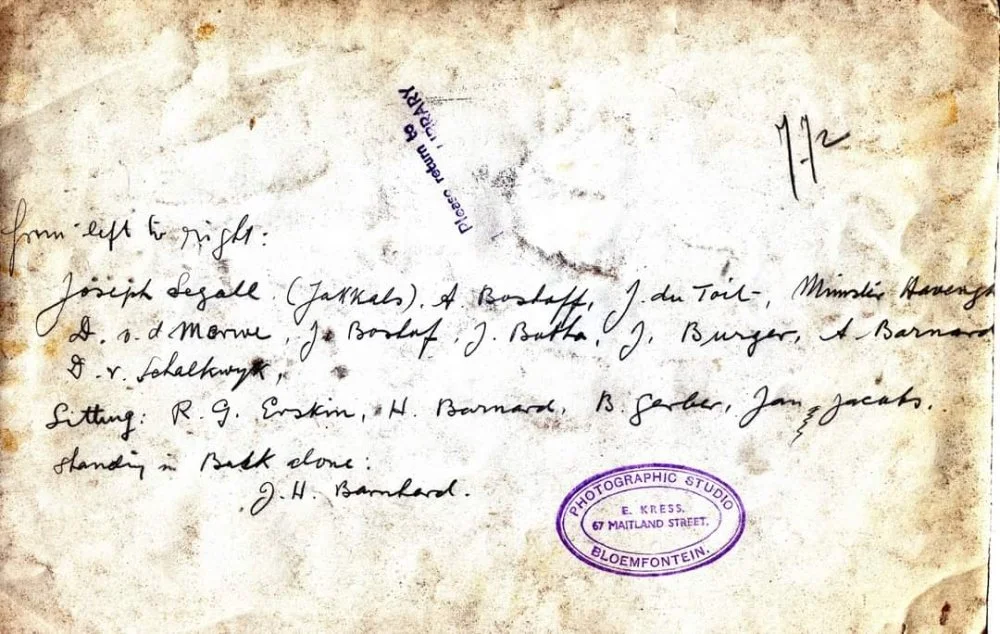 Please return to
LIBRARY
772
from left to right:
Joseph Segall (Jakkals). A Boshoff, J. du Toit, Minster Havengh
D. v. d Merwe, J. Boshof, J. Botha, J. Burger, A Barnard
D. v. Schalkwyk,
Sitting: R. G. Erskin, H. Barnard, B. Gerber, Jan Jacobs.
standing in Back alone:
J. H. Barnhard.
PHOTOGRAPHIC STUDIO
E. KRESS.
67 MAITLAND STREET.
BLOEMFONTEIN.